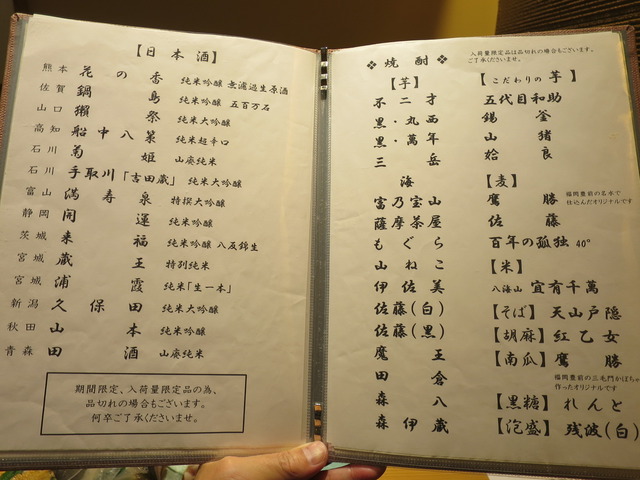 【日本酒】
熊本 花の香 純米吟醸 無濾過生原酒
佐賀 鍋島 純米吟醸 五百万石
山口 獺祭 純米大吟醸
高知 船中八策 純米超辛口
石川 菊姫 山廃純米
石川 手取川「吉田蔵」 純米大吟醸
富山 満寿泉 特撰大吟醸
静岡 開運 純米吟醸
茨城 来福 純米吟醸 八反錦生
宮城 蔵王 特別純米
宮城 浦霞 純米「生一本」
新潟 久保田 純米大吟醸
秋田 山本 純米吟醸
青森 田酒 山廃純米
期間限定、入荷量限定品の為、
品切れの場合もございます。
何卒ご了承くださいませ。
❖ 焼酎 ❖
入荷量限定品は品切れの場合もございます。
ご了承くださいませ。
【芋】
不二才
黒・丸西
黒・萬年
三岳
海
富乃宝山
薩摩茶屋
もぐら
山ねこ
伊佐美
佐藤(白)
佐藤(黒)
魔王
田倉
森八
森伊蔵
【こだわりの芋】
五代目和助
錫釜
山猪
姶良
【麦】
鷹勝
福岡豊前の名水で
仕込んだオリジナルです
佐藤
百年の孤独 40°
【米】
八海山 宜有千萬
【そば】 天山戸隠
【胡麻】 紅乙女
【南瓜】 鷹勝
福岡豊前の三毛門かぼちゃで
作ったオリジナルです
【黒糖】 れんと
【泡盛】 残波(白)